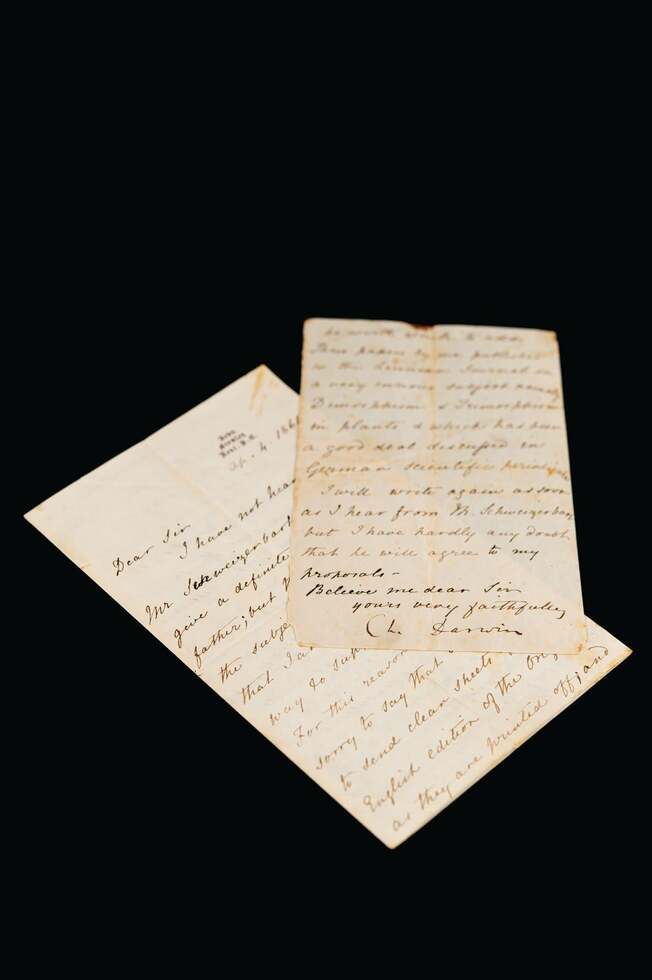 Down.
Bromley.
Kent. S.E.
Ap. 4. 186
Dear Sir
I have not hea
Mr Schweizerbart
give a definite
father; but
the subje
that I a
way to sup
For this reason
sorry to say that
to send clean sheets
English edition of the Ori
as they are printed off; and
be worth while to add
three papers by me published
in the Linnean Journal on
a very curious subject namely
Dimorphism & Trimorphism
in plants & which has been
a good deal discussed in
German scientific periodicals
I will write again as soon
as I hear from Mr. Schweizerbart
but I have hardly any doubt
that he will agree to my
proposals—
Believe me dear Sir
yours very faithfully
Ch. Darwin